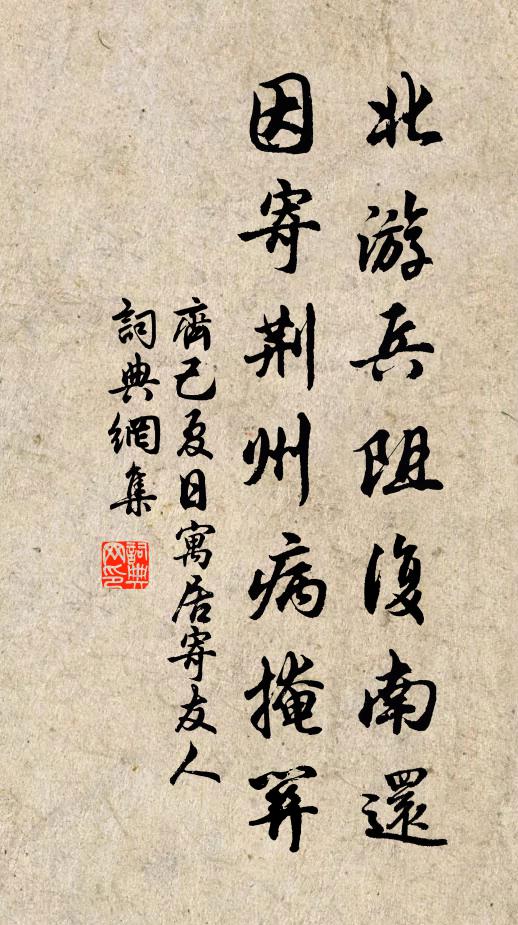 北游兵阻復南還
因寄荆州病掩關
齊己夏日寓居寄友人
詞典網集
詞典网印